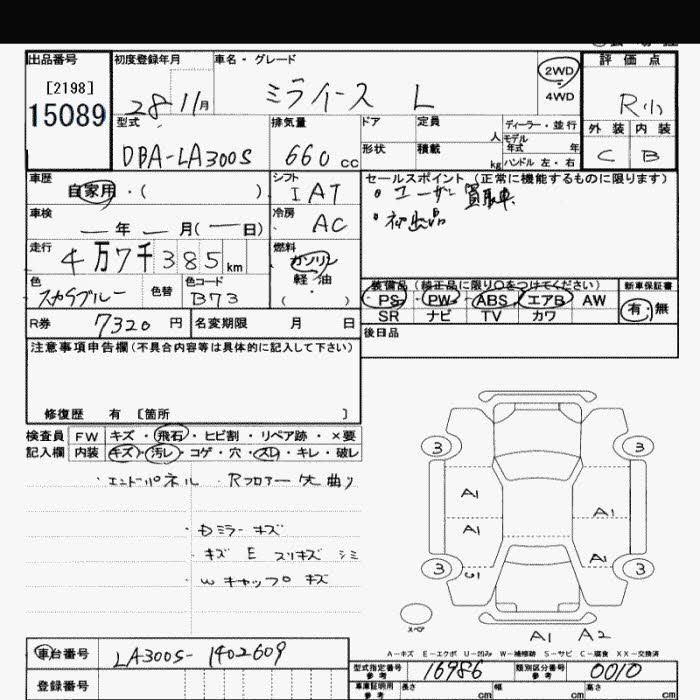 出品番号
[2198]
15089
初度登録年月
28 11 月
車名・グレード
ミライース L
2WD
4WD
評価点
R
外装 内装
C B
型式
DBA-LA300S
排気量
660 cc
ドア 定員 人
形状 積載 kg
ディーラー・並行
モデル
年式 年
ハンドル 左・右
車歴
自家用・( )
シフト
IAT
セールスポイント (正常に機能するものに限ります)
・ユーザー買取車
・初出品
車検
年 月( 日)
冷房
AC
走行
4万7千385 km
燃料
ガソリン
軽油
( ・ )
色
スカイブルー
色替
色コード
B73
装備品 (純正品に限り○をつけてください)
新車保証書
PS PW ABS エアB AW
有・無
SR ナビ TV カワ
R券 7320 円
名変期限 月 日
後日品
注意事項申告欄(不具合内容等は具体的に記入して下さい)
修復歴 有 [箇所 ]
検査員
記入欄
FW キズ・飛石・ヒビ割・リペア跡・×要
内装 キズ・汚レ・コゲ・穴・スレ・キレ・破レ
・エンドパネル Rフロアー 大曲り
・Dミラー キズ
・キズ E スリキズ シミ
・W キャップ キズ
3 3
A1
A1
A1
A1
3 3
スペア
A1 A2
A-キズ E-エクボ U-凹み W-補修跡 S-サビ C-腐食 XX-交換済
車台番号
LA300S-1402609
登録番号
型式指定番号
参考
16986
類別区分番号
参考
0010
車庫証明用
参考
長さ cm
幅 cm
高さ cm